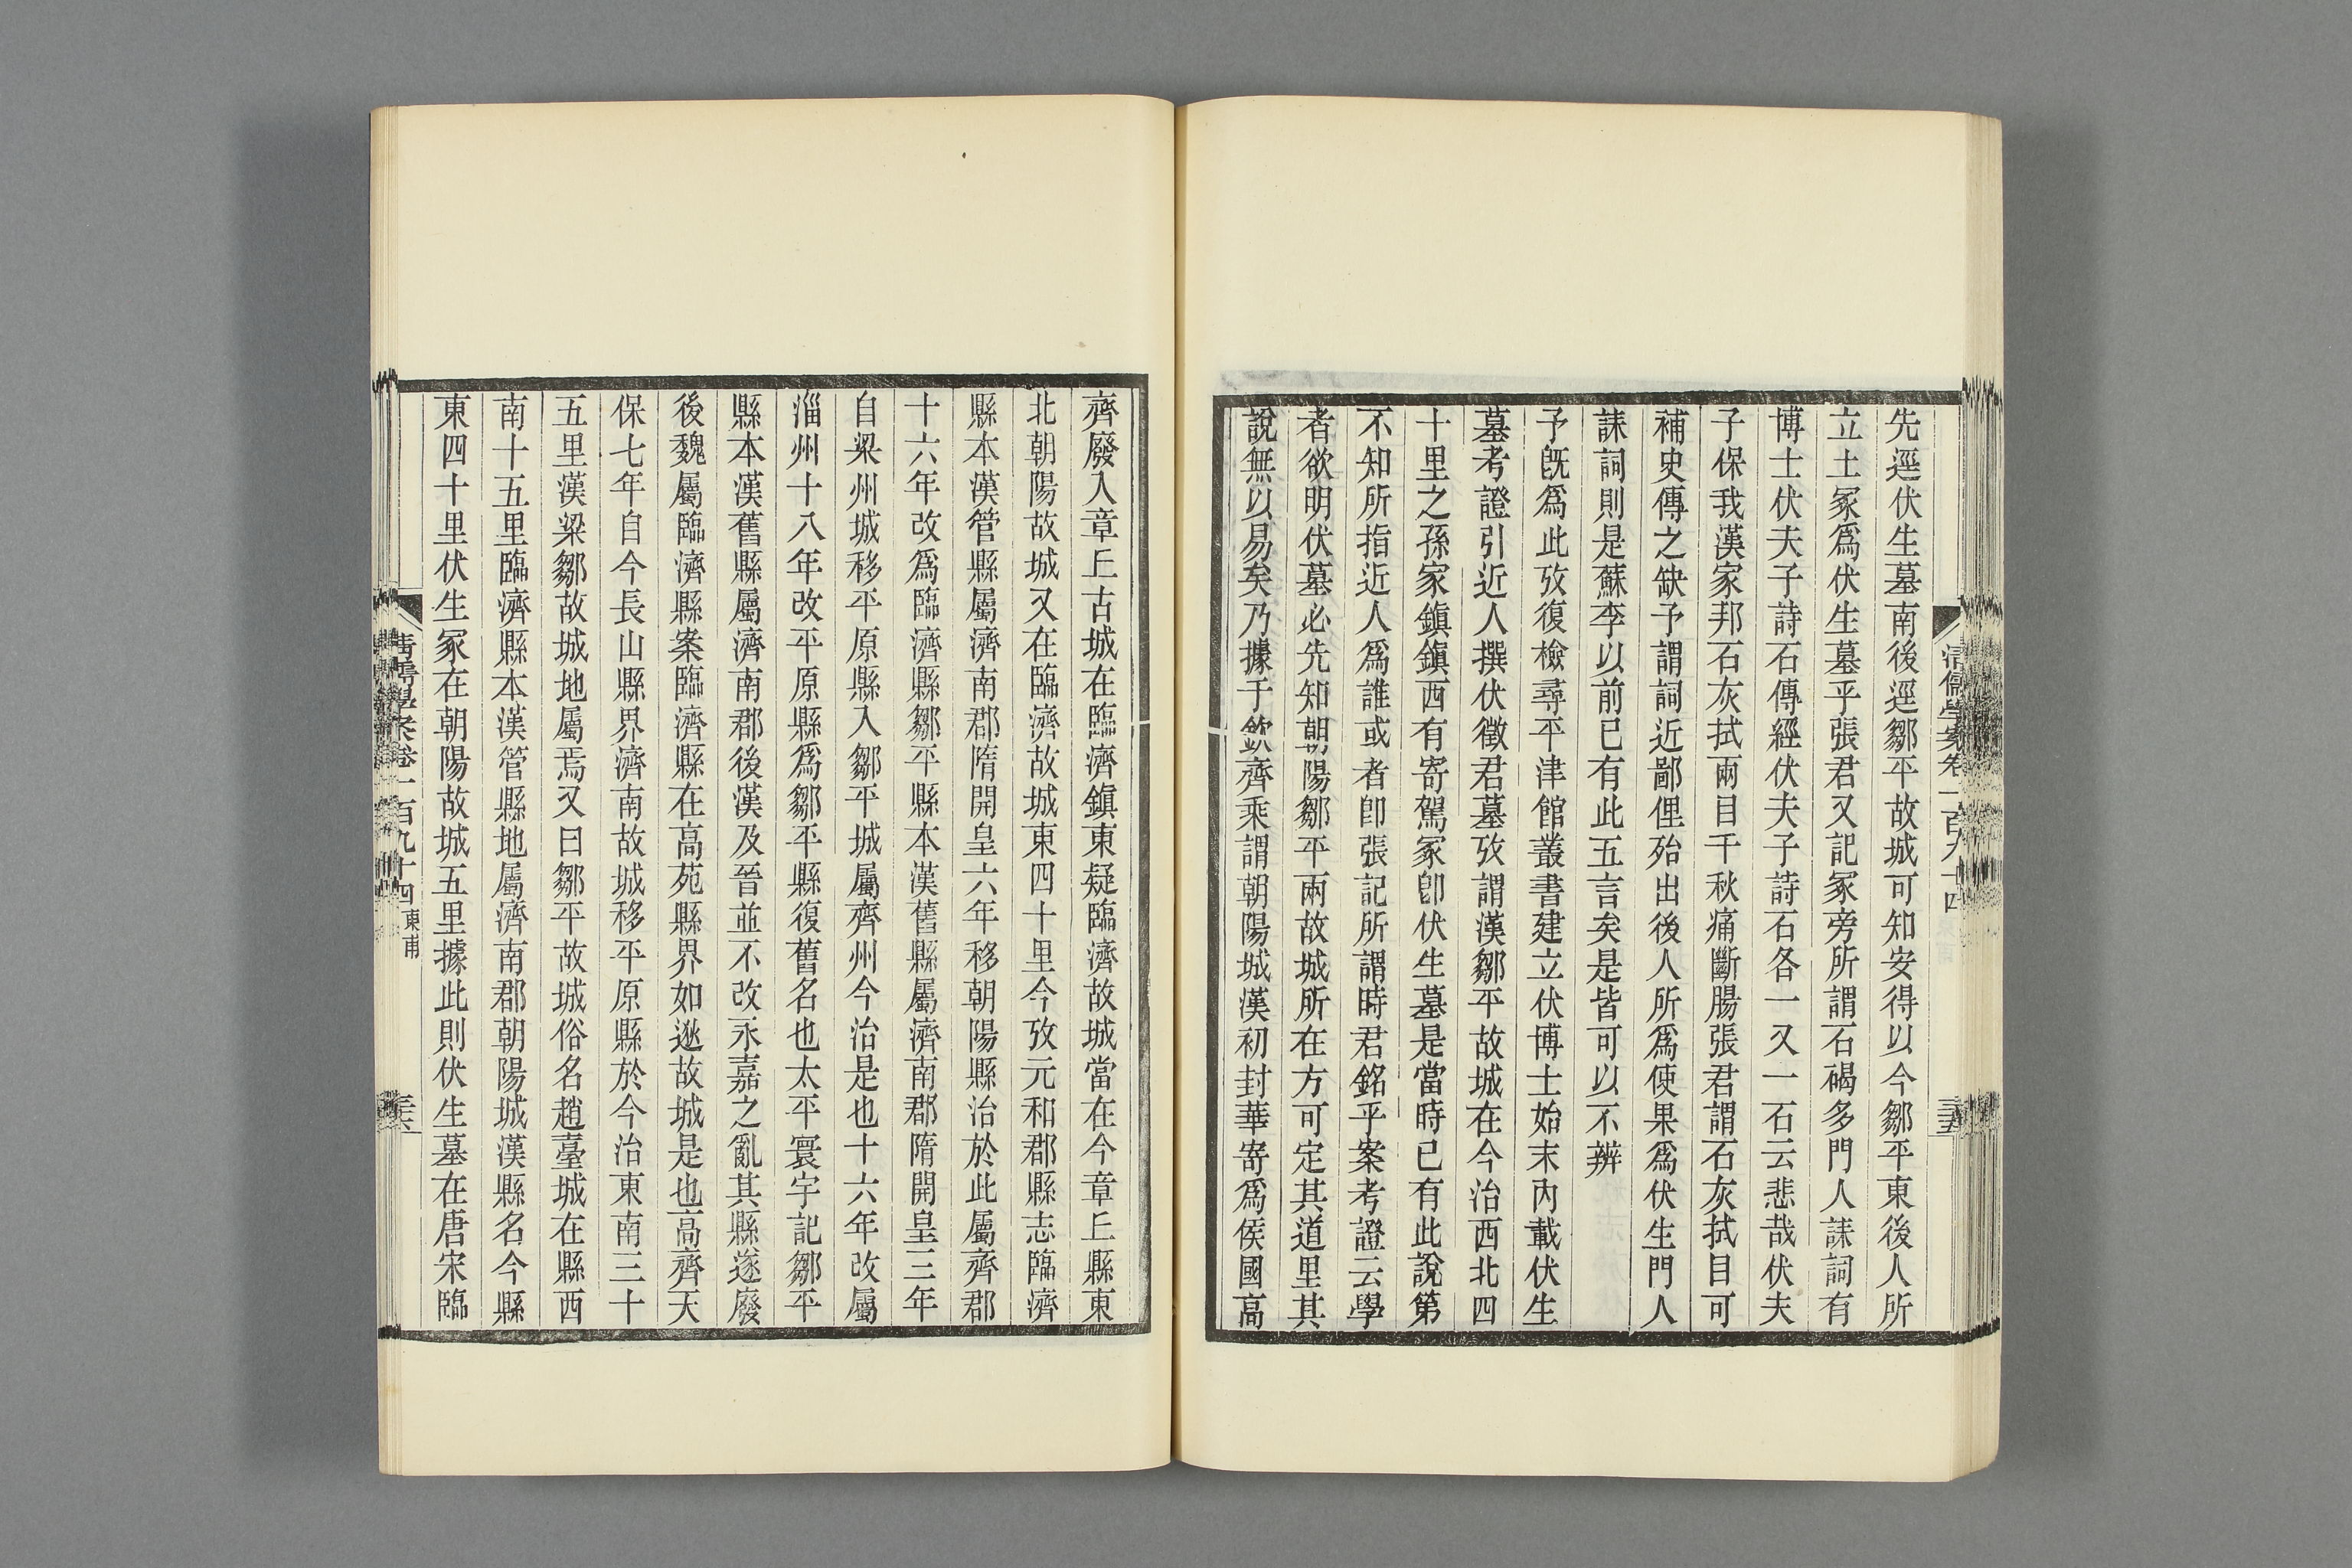 清儒學案卷一百九十四
三五
先逕伏生墓南後逕鄒平故城可知安得以今鄒平東後人所
立土冢爲伏生墓乎張君又記冢旁所謂石碣多門人誄詞有
博士伏夫子詩石傳經伏夫子詩石各一又一石云悲哉伏夫
子保我漢家邦石灰拭兩目千秋痛斷腸張君謂石灰拭目可
補史傳之缺予謂詞近鄙俚殆出後人所爲使果爲伏生門人
誄詞則是蘇李以前已有此五言矣是皆可以不辨
予旣爲此攷復檢尋平津館叢書建立伏博士始末內載伏生
墓考證引近人撰伏徵君墓攷謂漢鄒平故城在今治西北四
十里之孫家鎭鎭西有寄駕冢卽伏生墓是當時已有此說第
不知所指近人爲誰或者卽張記所謂時君銘乎案考證云學
者欲明伏墓必先知朝陽鄒平兩故城所在方可定其道里其
說無以易矣乃據于欽齊乘謂朝陽城漢初封華寄爲侯國高
齊廢入章丄古城在臨濟鎭東疑臨濟故城當在今章丄縣東
北朝陽故城又在臨濟故城東四十里今攷元和郡縣志臨濟
縣本漢管縣屬濟南郡隋開皇六年移朝陽縣治於此屬齊郡
十六年改爲臨濟縣鄒平縣本漢舊縣屬濟南郡隋開皇三年
自梁州城移平原縣入鄒平城屬齊州今治是也十六年改屬
淄州十八年改平原縣爲鄒平縣復舊名也太平寰宇記鄒平
縣本漢舊縣屬濟南郡後漢及晉並不改永嘉之亂其縣遂廢
後魏屬臨濟縣案臨濟縣在高苑縣界如逖故城是也高齊天
保七年自今長山縣界濟南故城移平原縣於今治東南三十
五里漢梁鄒故城地屬焉又曰鄒平故城俗名趙臺城在縣西
南十五里臨濟縣本漢管縣地屬濟南郡朝陽城漢縣名今縣
東四十里伏生冢在朝陽故城五里據此則伏生墓在唐宋臨
清儒學案卷一百九十四 東甫
三六